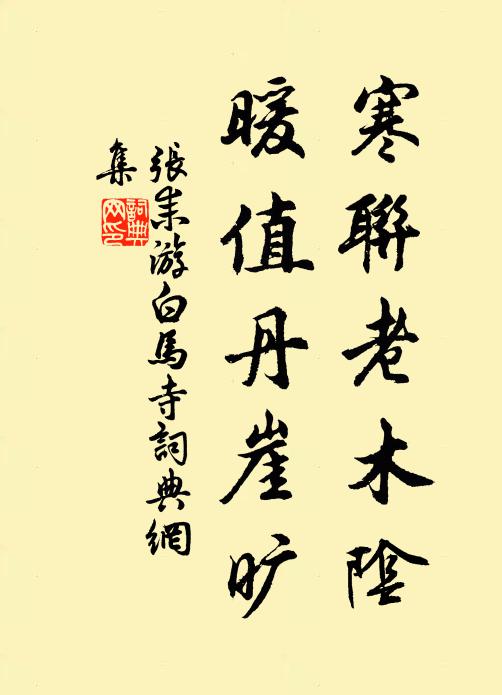 寒聯老木陰
暖值丹崖旷
張耒游白馬寺詞典網
集
詞典网印